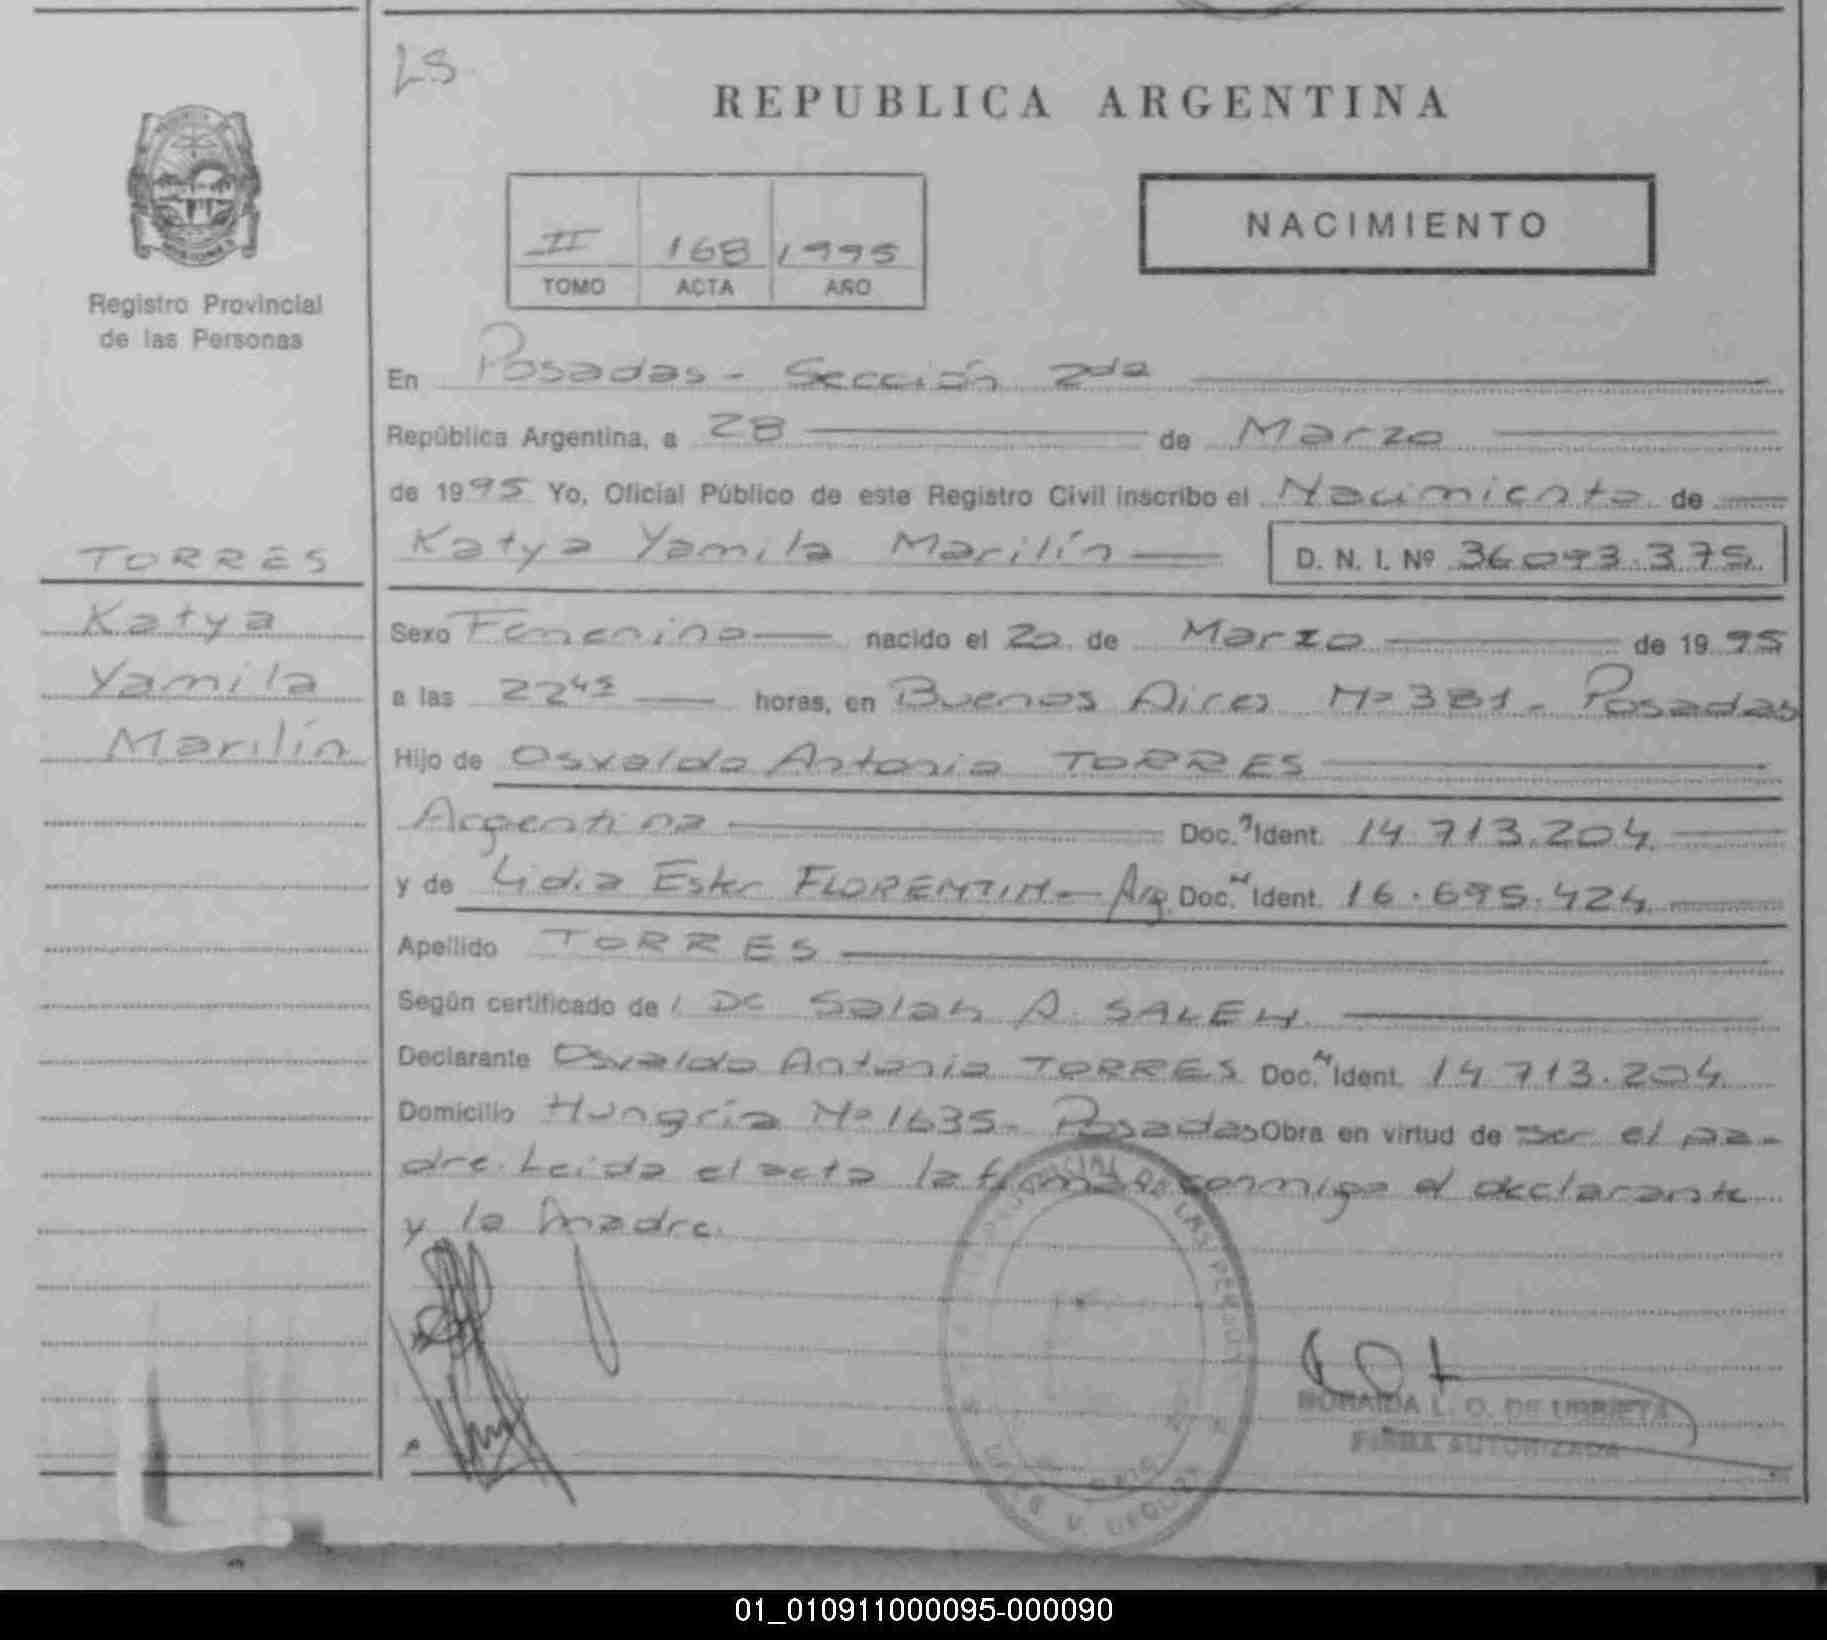 LS
REPUBLICA ARGENTINA
NACIMIENTO
II 168 1995
TOMO ACTA AÑO
Registro Provincial
de las Personas
TORRES
Katya
Yamila
Marilín
En Posadas - Sección 2da
República Argentina, a 28 de Marzo
de 1995 Yo, Oficial Público de este Registro Civil inscribo el Nacimiento de
Katya Yamila Marilín D. N. I. Nº 36093.375
Sexo Femenino nacido el 20 de Marzo de 1995
a las 22 45 horas, en Buenos Aires Nº 381 - Posadas
Hijo de Osvaldo Antonio TORRES
Argentina Doc. Ident. 14 713.204
y de Lidia Ester FLORENTIN - Arg. Doc. Ident. 16.695.424
Apellido TORRES
Según certificado de Salah A. SALEH
Declarante Osvaldo Antonio TORRES Doc. Ident. 14 713.204
Domicilio Hungría Nº 1635 - Posadas Obra en virtud de ser el pa-
dre. Leida el acta la firma conmigo el declarante
y la madre.
L. O. DE URRIETA
FIRMA AUTORIZADA
01_010911000095-000090